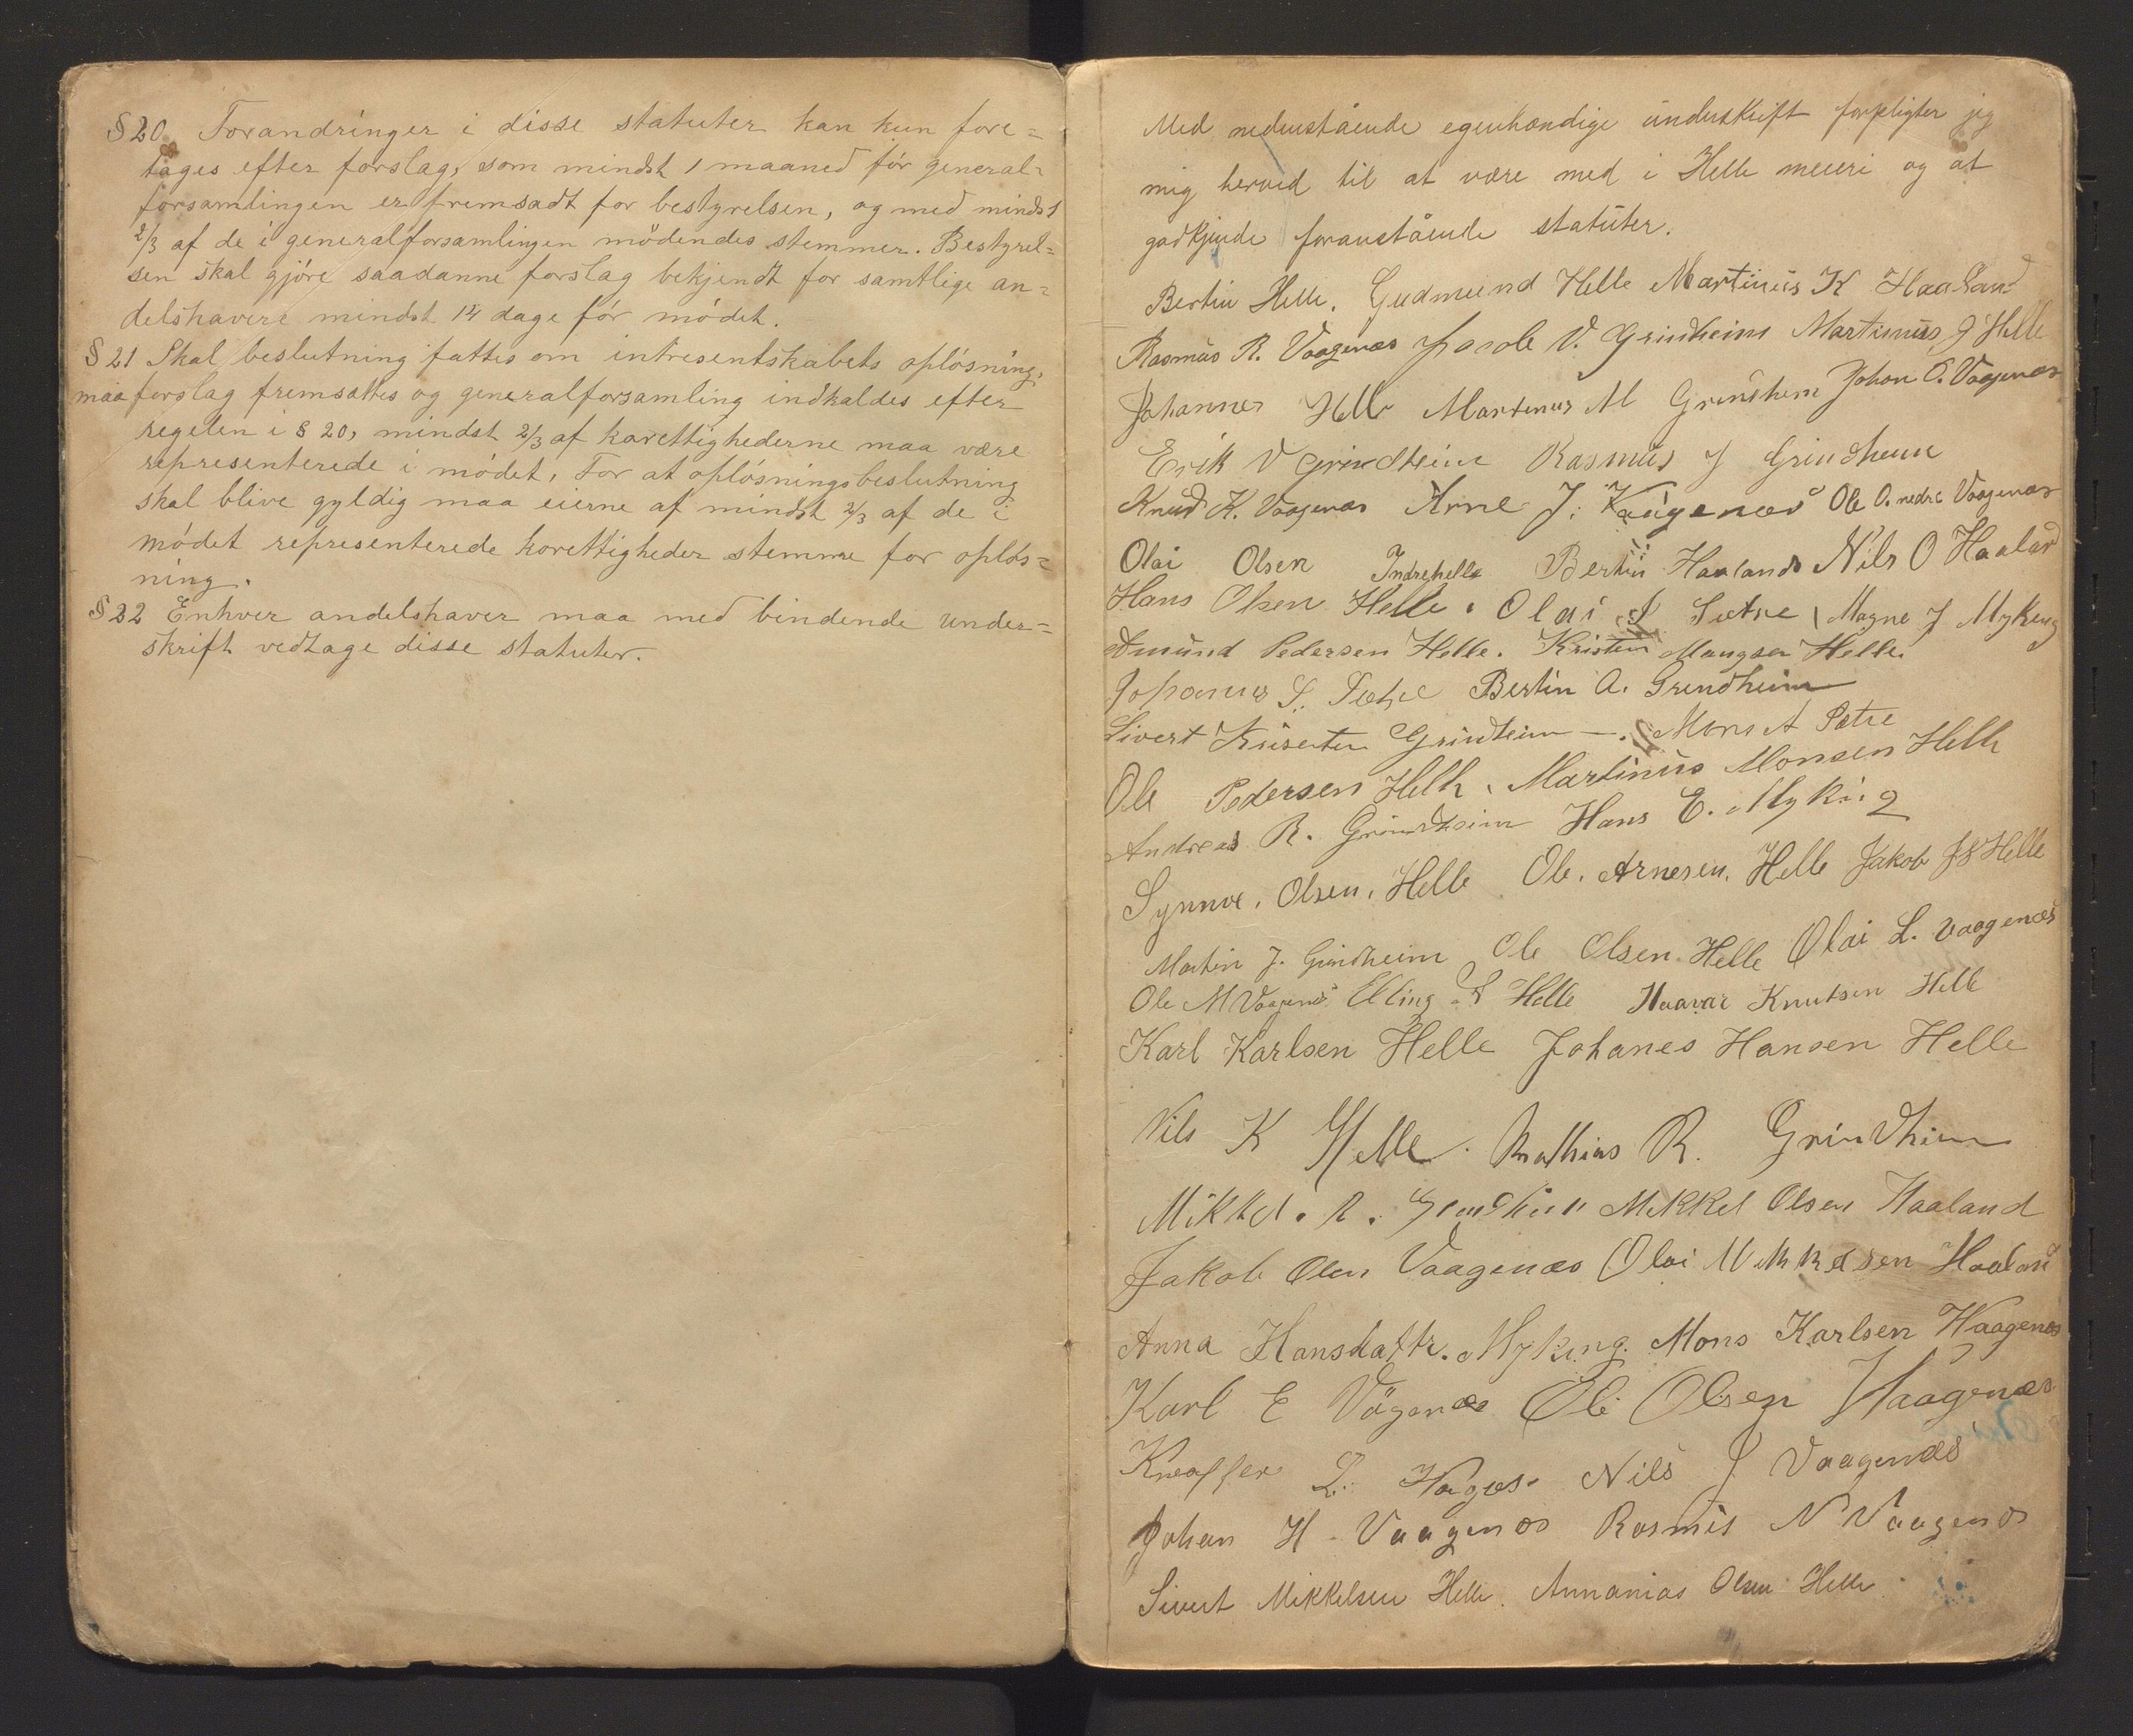 §20. Forandringer i disse statuter kan kun fore=
tages efter forslag, som mindst 1 maaned før general=
forsamlingen er fremsadt for bestyrelsen, og med mindst
2/3 af de i generalforsamlingen mödendes stemmer. Bestyrel=
sen skal gjöre saadanne forslag bekjendt for samtlige an=
delshavere mindst 14 dage för mödet.
§21 Skal beslutning fattes om intresentskabets oplösning,
maa forslag fremsættes og generalforsamling indkaldes efter
regelen i § 20, mindst 2/3 af korettighederne maa være
representerede i mödet. For at oplösningsbeslutning
skal blive gyldig maa eierne af mindst 2/3 af de i
mödet representerede korettigheder stemme for oplös=
ning.
§22 Enhver andelshaver maa med bindende under=
skrift vedtage disse statuter.
Med nedenstående egenhændige underskrift forpligter jeg
mig herved til at være med i Helle meieri og at
godkjende foranstående statuter.
Bertin Helle. Gudmund Helle Martinus K Haaland
Rasmus R. Vaagenæs Jacob V. Grindheim Martinus J Helle
Johannes Helle Martinus M Grindheim Johan O. Vaagenæs
Erik V Grindheim Rasmus J Grindheim
Knud K. Vaagenæs Arne J. Ole O. nedre Vaagenæs
Olai Olsen Indrehelle Bertin Haaland Nils O Haaland
Hans Olsen Helle. Olai Sætre Magne J Myking
Amund Pedersen Helle. Kristen Mangsen Helle.
Johannes S. Bertin A. Grindheim
Sivert Grindheim Mons A Sætre
Ole Pedersen Helle. Martinus Monsen Helle
Andreas R. Grindheim Hans E. Myking
Synnve. Olsen. Helle Ole. Arnesen. Helle Jakob Helle
Martin J. Grindheim Ole Olsen Helle Olai L. Vaagenæs
Ole M Vaagenæs Elling Helle Haavar Knutsen Helle
Karl Karlsen Helle Johanes Hansen Helle
Nils K Helle. Mathias R. Grindheim
Mikkel. R. Grindheim Mikkel Olsen Haaland
Jakob Olsen Vaagenæs Olai Mikkelsen Haaland
Anna Hansdattr. Myking. Mons Karlsen Waagenæs
Karl E Vågenæs Ole Olsen Vaagenæs
L. Nils J Vaagenæs
Johan H Vaagenæs Rasmus N Vaagenæs
Sivert Mikkelsen Helle. Annanias Olsen Helle